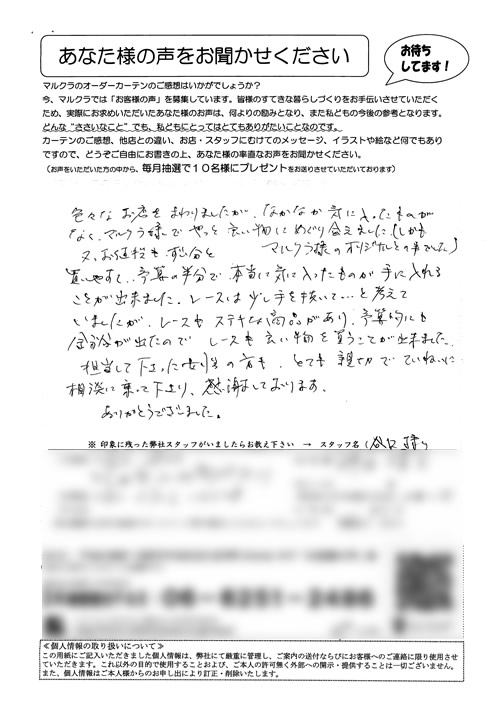 あなた様の声をお聞かせください
お待ち
してます！
マルクラのオーダーカーテンのご感想はいかがでしょうか？
今、マルクラでは「お客様の声」を募集しています。皆様のすてきな暮らしづくりをお手伝いさせていただく
ため、実際にお求めいただいたあなた様のお声は、何よりの励みとなり、また私どもの今後の参考となります。
どんな“ささいなこと”でも、私どもにとってはとてもありがたいことなのです。
カーテンのご感想、他店との違い、お店・スタッフにむけてのメッセージ、イラストや絵など何でもあり
ですので、どうぞご自由にお書きの上、あなた様の率直なお声をお聞かせください。
（お声をいただいた方の中から、毎月抽選で１０様にプレゼントをお送りさせていただいております）
色々な お店を まわりましたが、なかなか 気に入ったものが
なく、マルクラ様で やっと 良い物に めぐり会えました（しかも
マルクラ様のオリジナルとの事でした）
又、お値段も ずい分と
買いやすく、予算の半分で 本当に気に入ったものが 手に入れる
ことが出来ました。レースは 少し手を抜いて…と 考えて
いましたが、レースも ステキな商品があり、予算的にも
余分が出たので レースも 良い物を買うことが出来ました。
担当して下さった の方も、とても 親切で ていねいに
相談に乗って下さり、感謝しております。
ありがとうございました。
※ 印象に残った弊社スタッフがいましたらお教え下さい → スタッフ名（谷口 様）
≪個人情報の取り扱いについて≫
この用紙にご記入いただきました個人情報は、弊社にて厳重に管理し、ご案内の送付ならびにお客様へのご連絡に限り使用させ
ていただきます。これ以外の目的で使用することおよび、ご本人の許可無く外部への開示・提供することは一切ございません。
また、個人情報はご本人様からのお申し出により訂正・削除いたします。